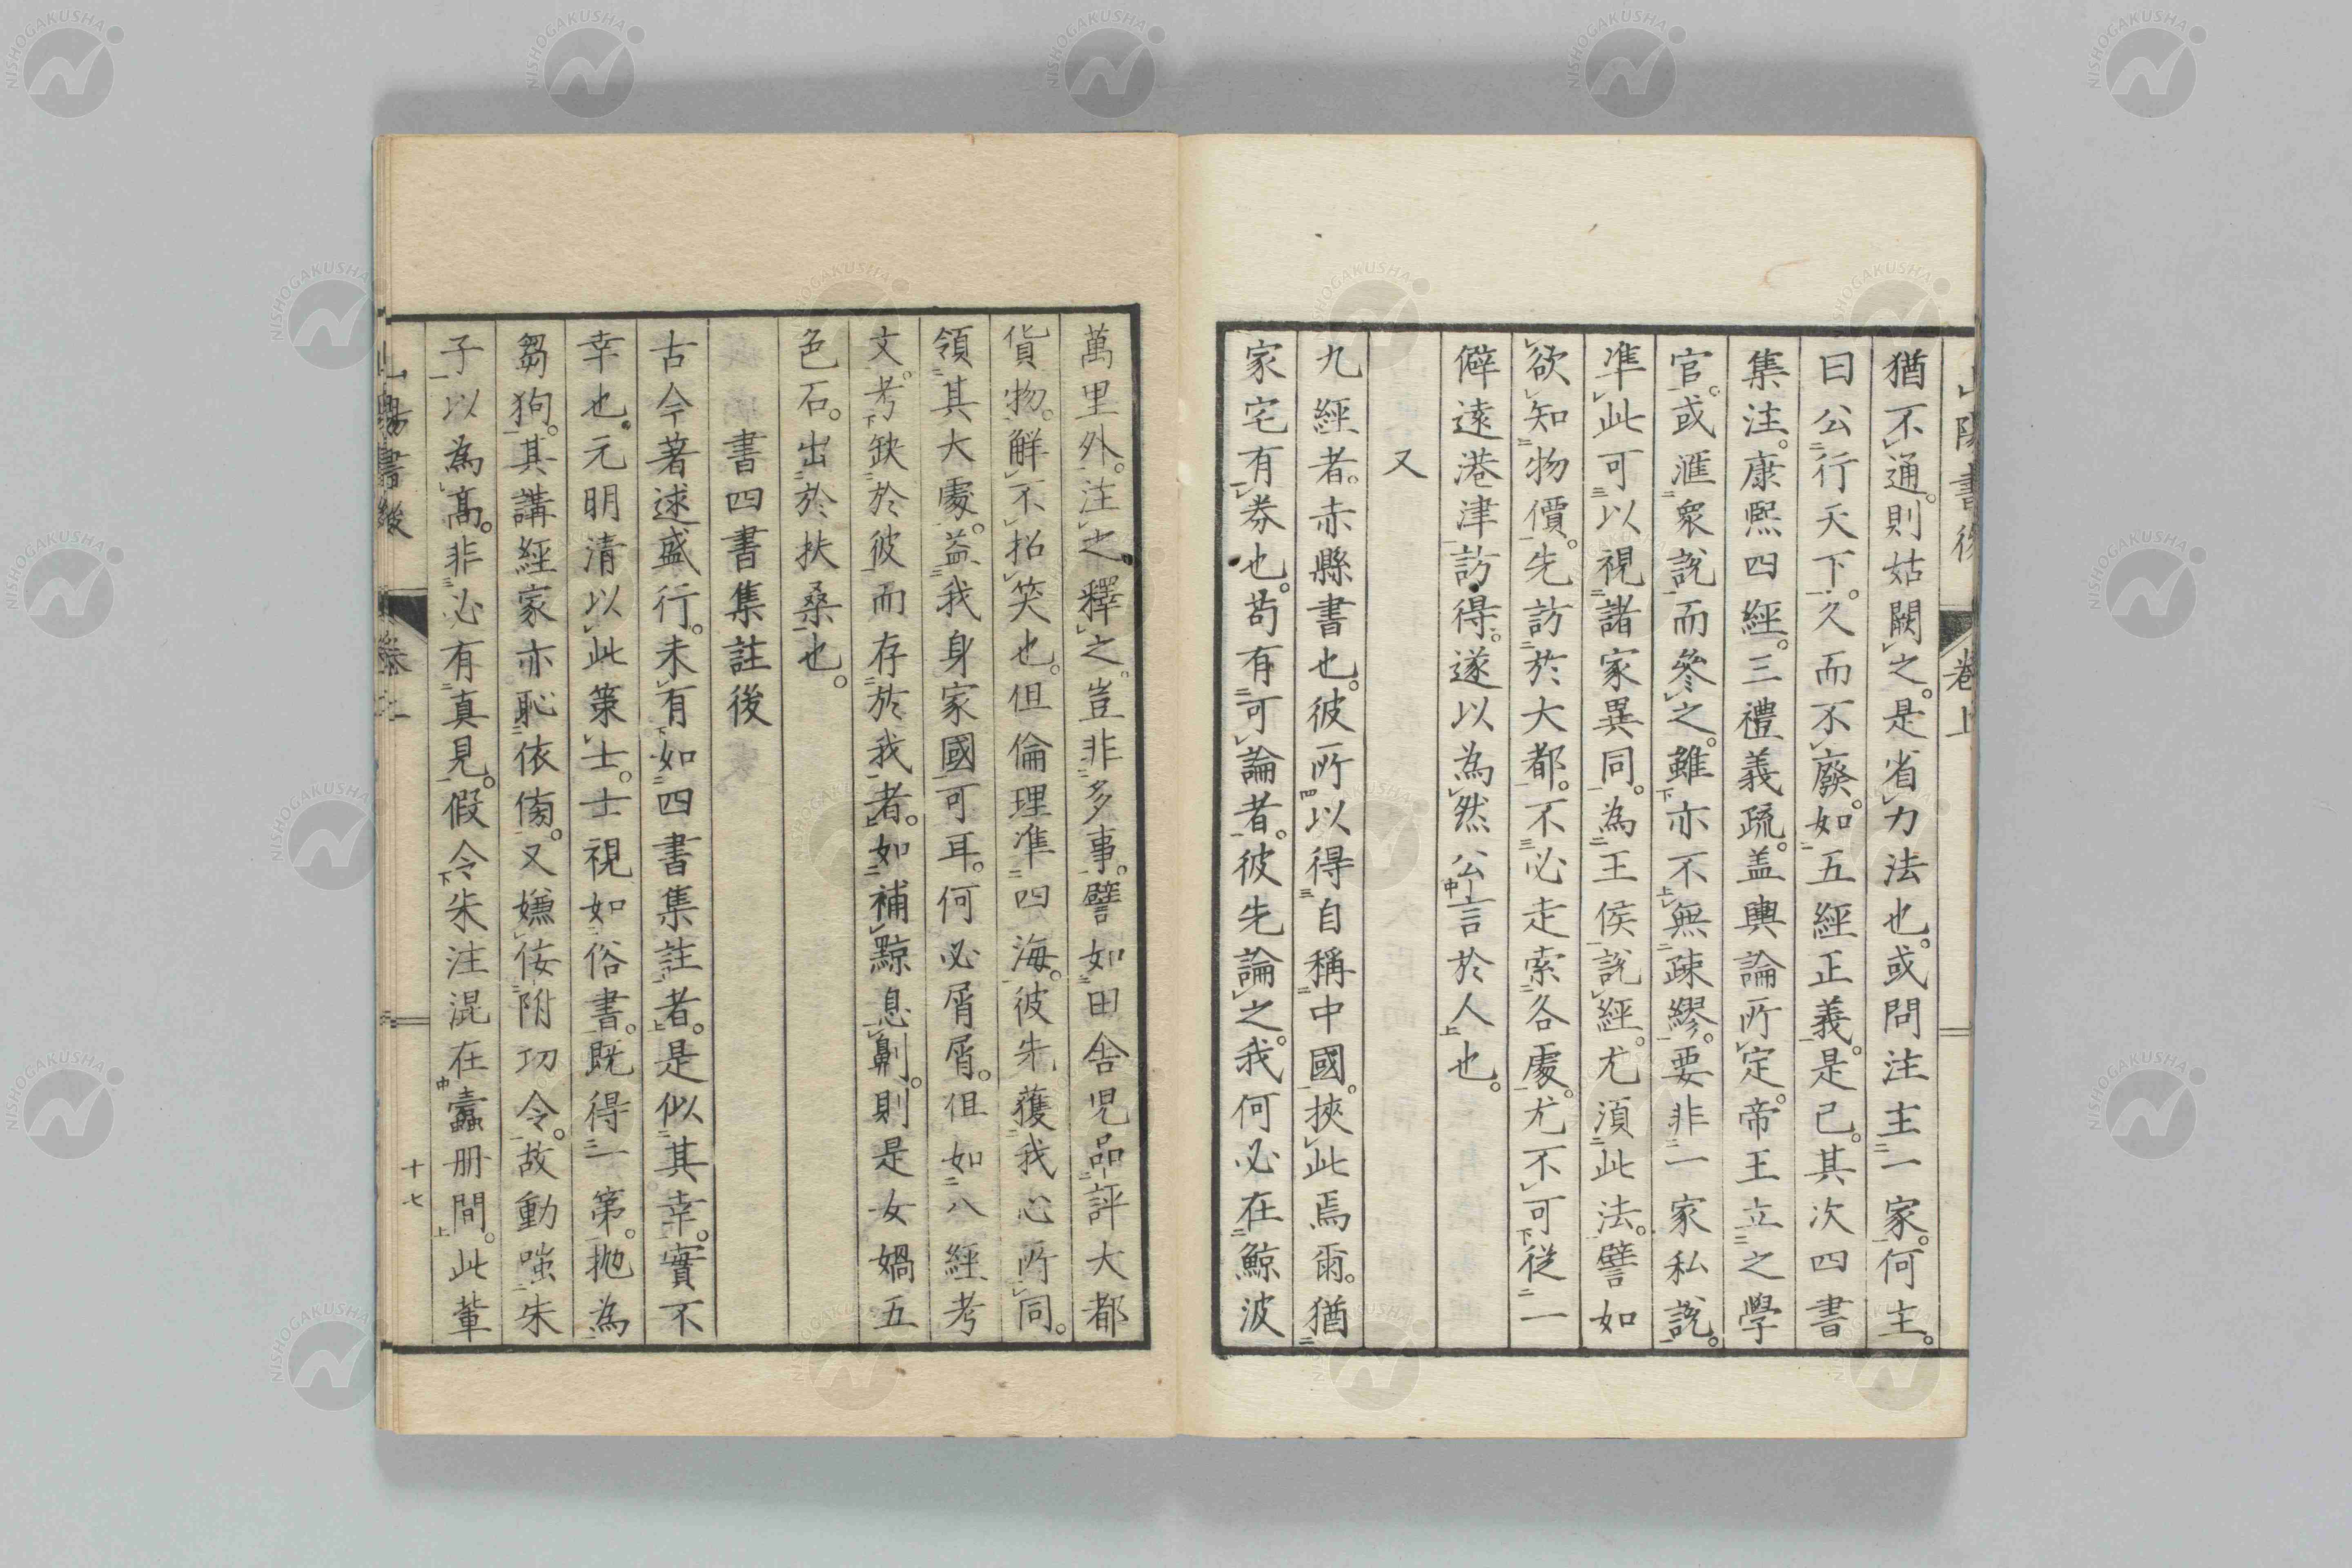 猶不通。則姑闕之。是省力法也。或問注主一家。何主。
曰公行天下。久而不廢。如五經正義。是已。其次四書
集注。康熙四經。三禮義疏。盖輿論所定。帝王立之學
官。或滙衆說而參之。雖亦不無疎繆。要非一家私說。
準此可以視諸家異同。為王侯說經。尤須此法。譬如
欲知物價。先訪於大都。不必走索各處。尤不可從一
僻遠港津訪得。遂以為然公言於人也。
又
九經者。赤縣書也。彼所以得自稱中國。挾此焉爾。猶
家宅有券也。苟有可論者。彼先論之。我何必在鯨波
萬里外。注之釋之。豈非多事。譬如田舍児品評大都
貨物。觧不招笑也。但倫理準四海。彼先獲我心所同。
領其大處。益我身家國可耳。何必屑屑。但如八經考
文。考缺於彼而存於我者。如補黥息劓。則是女媧五
色石。出於扶桑也。
書四書集註後
古今著逑盛行。未有如四書集註者。是似其幸。實不
幸也。元明清以此策士。士視如俗書。既得一第。抛為
芻狗。其講經家亦恥依傍。又嫌侫附功令。故動嗤朱
子以為高。非必有真見。假令朱注混在蠹冊間。此軰
山陽書後
卷上
十七
NISHOGAKUSHA